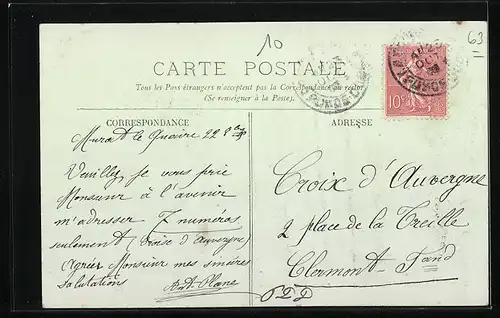 10
63
CARTE POSTALE
Tous les Pays étrangers n'acceptent pas la Correspondance au recto
(Se renseigner à la Poste).
CORRESPONDANCE
ADRESSE
10c
Murat le Quaire 22 8bre
Veuillez, je vous prie
Monsieur à l'avenir
m'adresser 7 numeros
seulement (Croix d'Auvergne)
Agréer Monsieur mes sincères
Salutations
Ant. Plane
Croix d'Auvergne
2 place de la Treille
Clermont-Fand
PDD